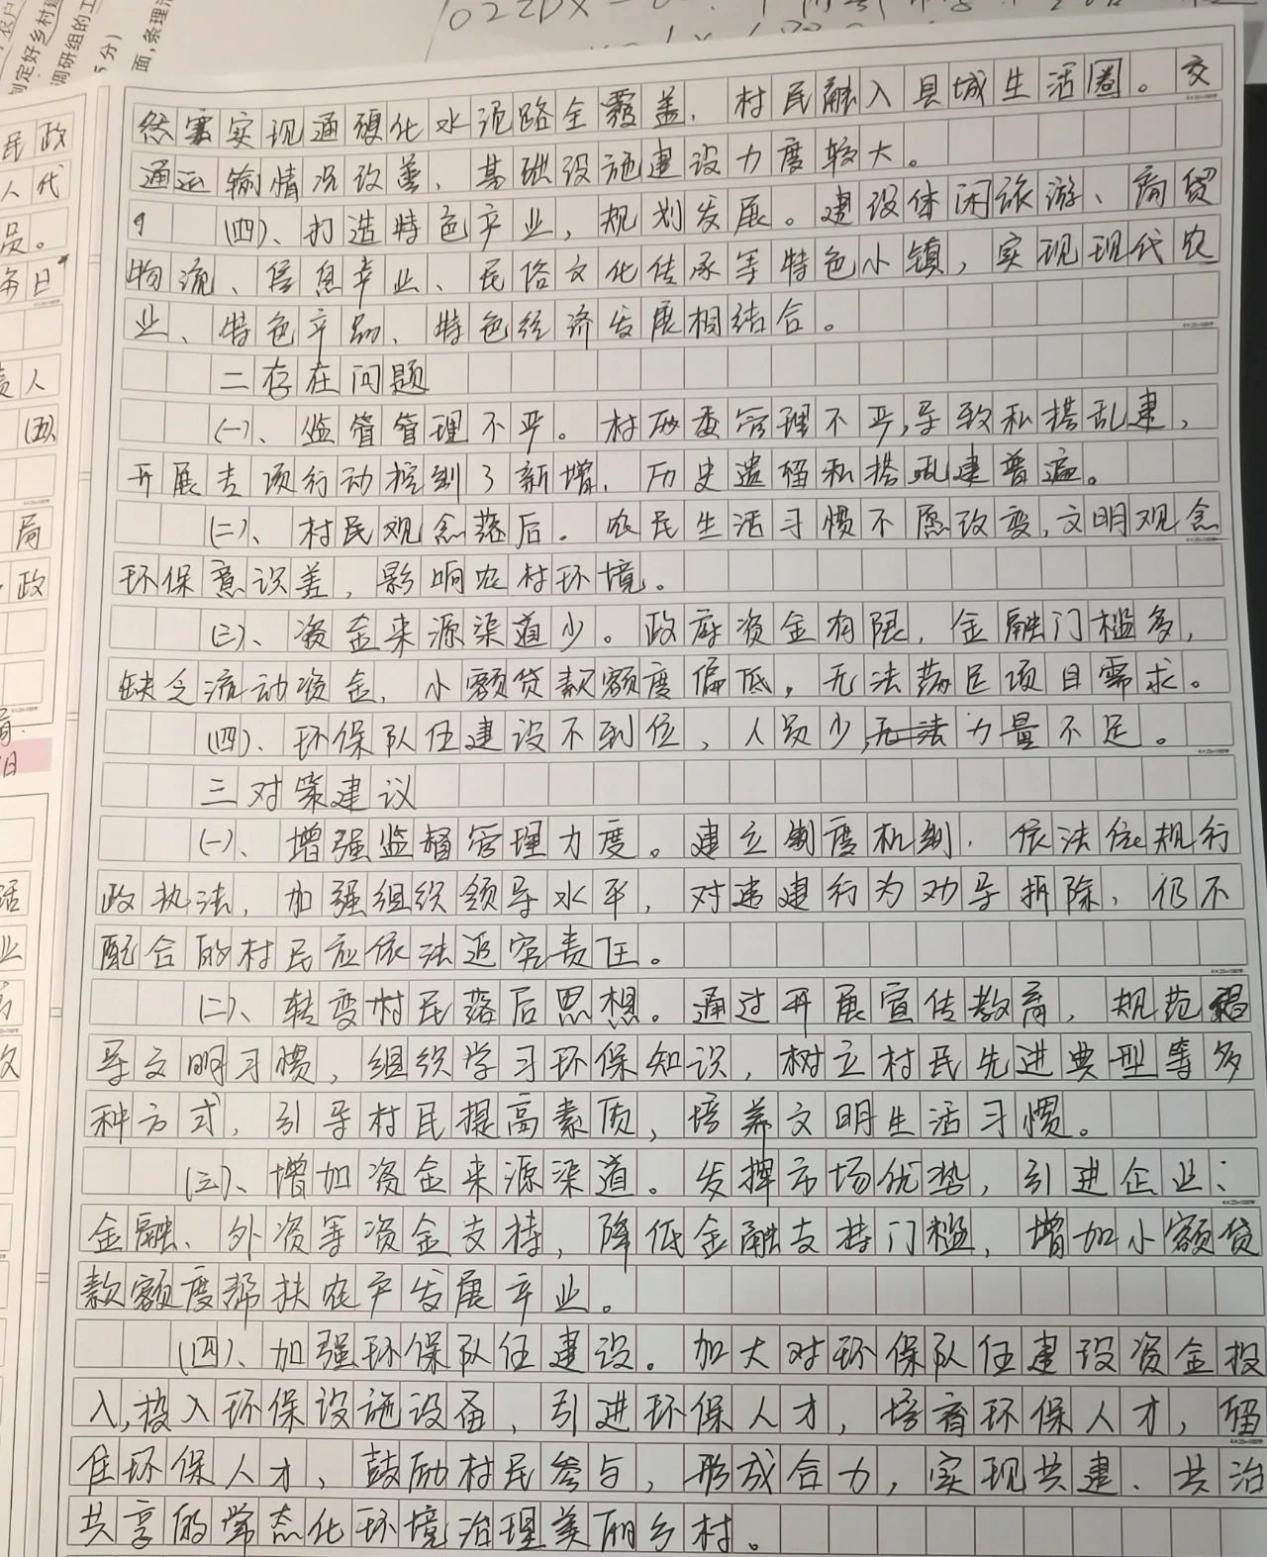 面,条理清
5分)
调研组的工
制定好乡村建
民政
人代
员。
责人
(五)
局
政
次
然寨实现通硬化水泥路全覆盖,村民融入县城生活圈。交
通运输情况改善、基础设施建设力度较大。
(四)、打造特色产业,规划发展。建设休闲旅游、商贸
物流、信息产业、民俗文化传承等特色小镇,实现现代农
业、特色产品、特色经济发展相结合。
二存在问题
(一)、监督管理不严。村两委管理不严,导致私搭乱建,
开展专项行动控制了新增,历史遗留私搭乱建普遍。
(二)、村民观念落后。农民生活习惯不愿改变,文明观念
环保意识差,影响农村环境。
(三)、资金来源渠道少。政府资金有限,金融门槛多,
缺乏流动资金,小额贷款额度偏低,无法满足项目需求。
(四)、环保队伍建设不到位,人员少,无法力量不足。
三对策建议
(一)、增强监督管理力度。建立制度机制,依法依规行
政执法,加强组织领导水平,对违建行为劝导拆除,仍不
配合的村民应依法追究责任。
(二)、转变村民落后思想。通过开展宣传教育,规范
导文明习惯,组织学习环保知识,树立村民先进典型等多
种方式,引导村民提高素质,培养文明生活习惯。
(三)、增加资金来源渠道。发挥市场优势,引进企业、
金融、外资等资金支持,降低金融支持门槛,增加小额贷
款额度帮扶农户发展产业。
(四)、加强环保队伍建设。加大对环保队伍建设资金投
入,投入环保设施设备,引进环保人才,培育环保人才,留
住环保人才,鼓励村民参与,形成合力,实现共建、共治
共享的常态化环境治理美丽乡村。